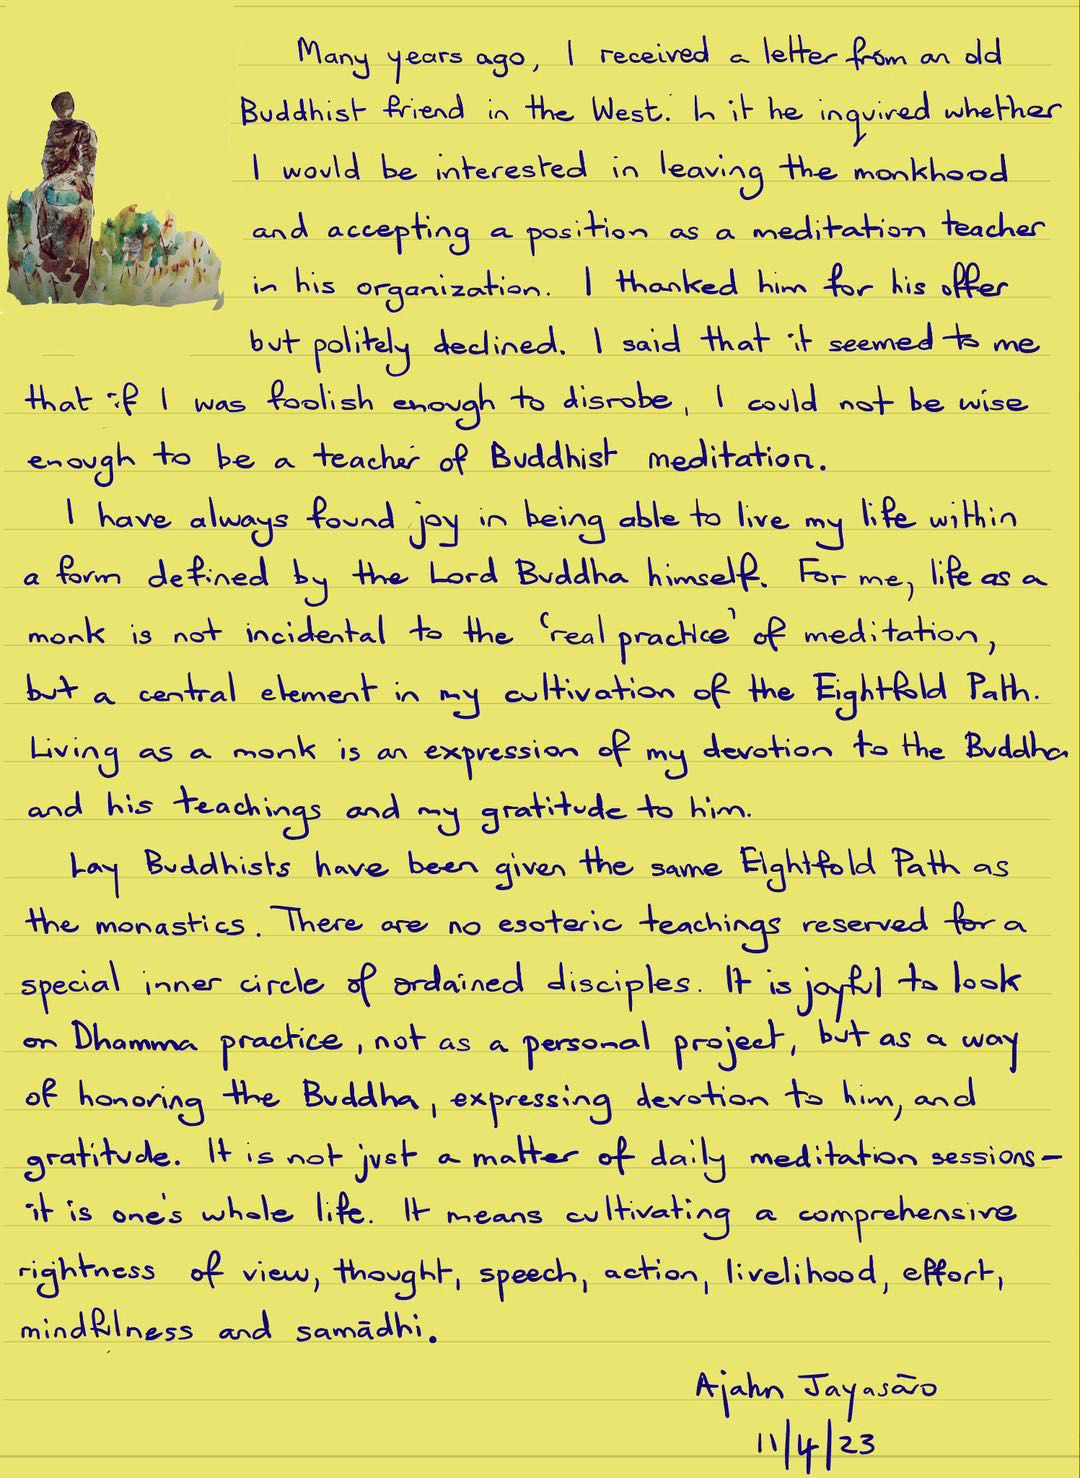 Many years ago, I received a letter from an old
Buddhist friend in the West. In it he inquired whether
I would be interested in leaving the monkhood
and accepting a position as a meditation teacher
in his organization. I thanked him for his offer
but politely declined. I said that it seemed to me
that if I was foolish enough to disrobe, I could not be wise
enough to be a teacher of Buddhist meditation.
I have always found joy in being able to live my life within
a form defined by the Lord Buddha himself. For me, life as a
monk is not incidental to the 'real practice' of meditation,
but a central element in my cultivation of the Eightfold Path.
Living as a monk is an expression of my devotion to the Buddha
and his teachings and my gratitude to him.
Lay Buddhists have been given the same Eightfold Path as
the monastics. There are no esoteric teachings reserved for a
special inner circle of ordained disciples. It is joyful to look
on Dhamma practice, not as a personal project, but as a way
of honoring the Buddha, expressing devotion to him, and
gratitude. It is not just a matter of daily meditation sessions –
it is one's whole life. It means cultivating a comprehensive
rightness of view, thought, speech, action, livelihood, effort,
mindfulness and samādhi.
Ajahn Jayasāro
11/4/23